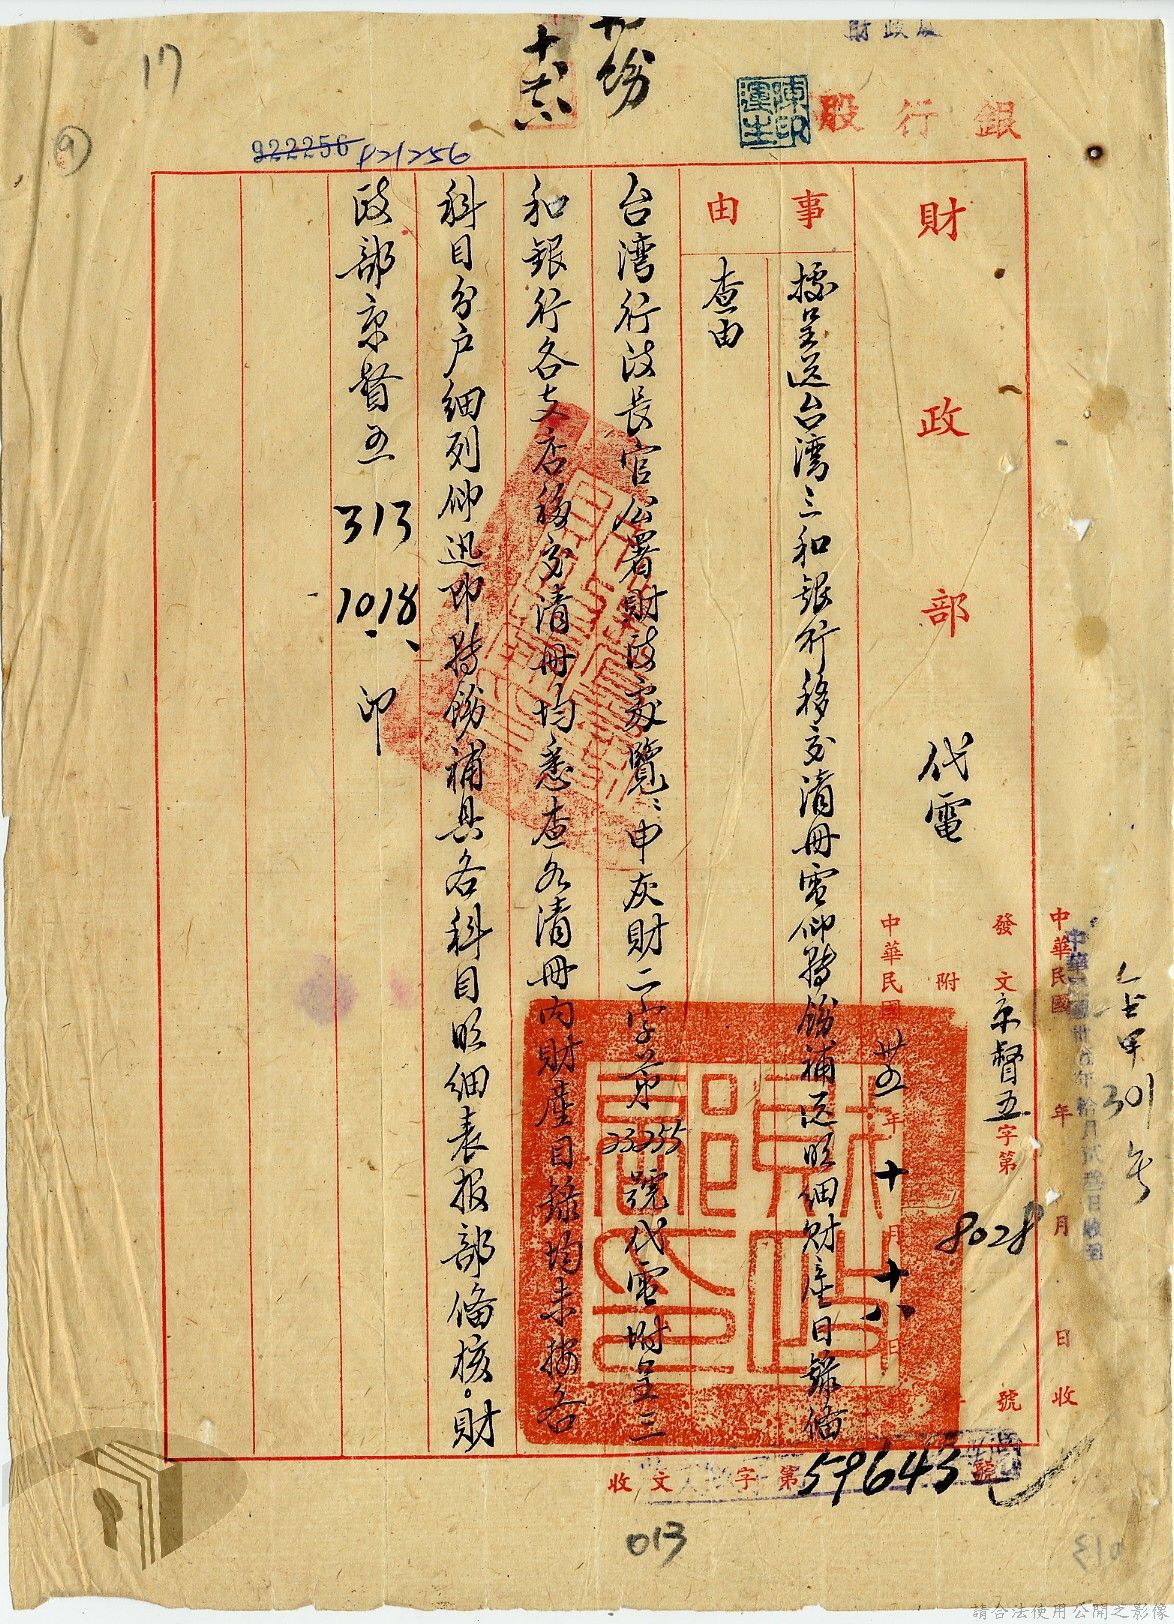 財政處
銀行股
陳漢生印
十六
17
9
922256
921256
財政部 代電
中華民國 年 月 日收
發文京督五字第8028號
附
中華民國卅五年十月十八日
金甲301号
事由
據呈送台灣三和銀行移交清冊電仰轉飭補送明細財產目錄備
查由
台湾行政長官公署財政處覽：申灰財二字第23255號代電附呈三
和銀行各支店移交清冊均悉查各清冊內財產目錄均未按各
科目分户細列仰迅即轉飭補具各科目明細表报部備核。財
政部京督五
313
1018、印
收文 字第59643號
013
請合法使用公開之影像